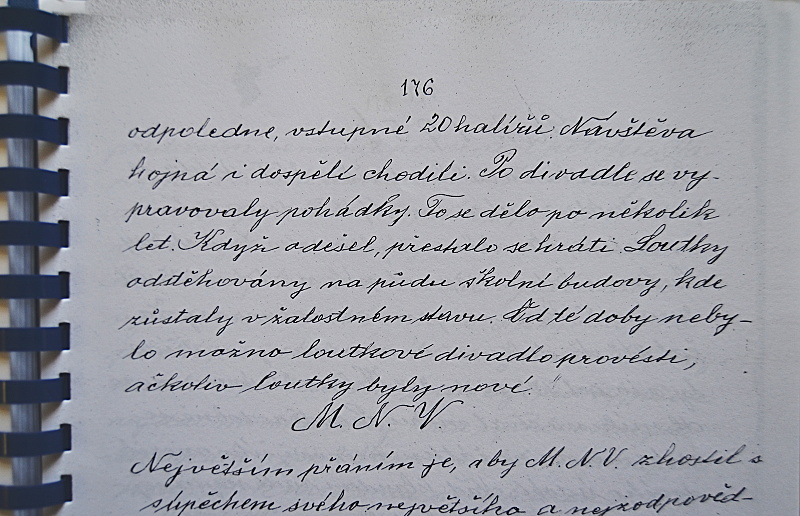 176
odpoledne, vstupné 20 halířů. Návštěva
hojná i dospělí chodili. Po divadle se vy-
pravovaly pohádky. To se dělo po několik
let. Když odešel, přestalo se hráti. Loutky
odstěhovány na půdu školní budovy, kde
zůstaly v žalostném stavu. Od té doby neby-
lo možno loutkové divadlo provésti,
ačkoliv loutky byly nové.
M. N. V.
Největším přáním je, aby M.N.V. zhostil s
súpěchem svého největšího a nejzodpověd-